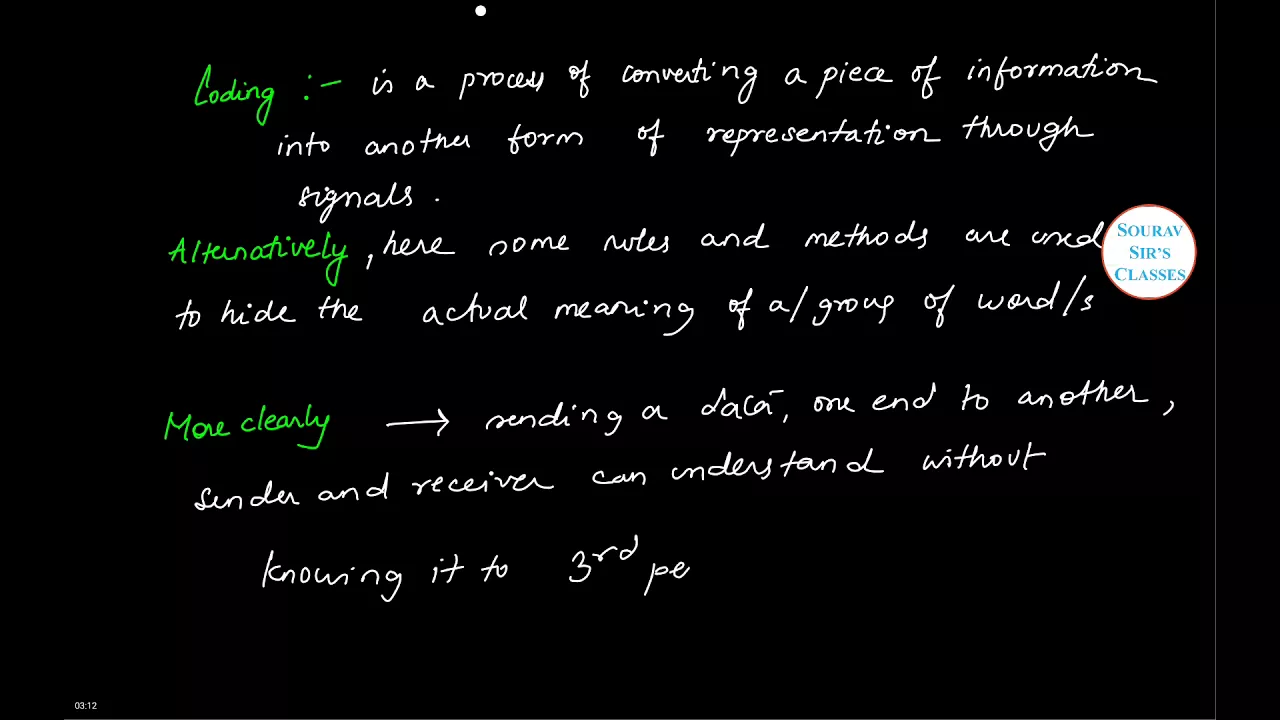 Coding :- is a process of converting a piece of information
into another form of representation through
signals.
Alternatively, here some rules and methods are used
to hide the actual meaning of a/group of word/s
SOURAV
SIR'S
CLASSES
More clearly → sending a data, one end to another,
sender and receiver can understand without
knowing it to 3rd pe
03:12